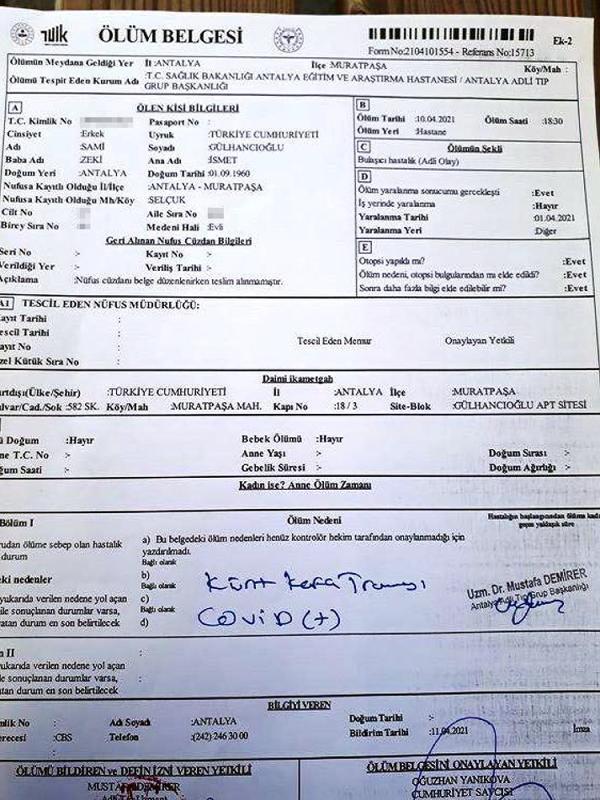 TÜİK ÖLÜM BELGESİ
Form No:2104101554 - Referans No:15713
Ek-2
Ölümün Meydana Geldiği Yer İl :ANTALYA İlçe :MURATPAŞA Köy/Mah :
Ölümü Tespit Eden Kurum Adı :T.C. SAĞLIK BAKANLIĞI ANTALYA EĞİTİM VE ARAŞTIRMA HASTANESİ / ANTALYA ADLİ TIP
GRUP BAŞKANLIĞI
A ÖLEN KİŞİ BİLGİLERİ
T.C. Kimlik No Pasaport No :
Cinsiyet :Erkek Uyruk :TÜRKİYE CUMHURİYETİ
Adı :SAMİ Soyadı :GÜLHANCIOĞLU
Baba Adı :ZEKİ Ana Adı :İSMET
Doğum Yeri :ANTALYA Doğum Tarihi :01.09.1960
Nufusa Kayıtlı Olduğu İl/İlçe :ANTALYA - MURATPAŞA
Nufusa Kayıtlı Olduğu Mh/Köy :SELÇUK
Cilt No Aile Sıra No
Birey Sıra No Medeni Hali :Evli
Geri Alınan Nufus Cüzdan Bilgileri
Seri No :- Kayıt No :-
Verildiği Yer :- Veriliş Tarihi :-
Açıklama :Nüfus cüzdanı belge düzenlenirken teslim alınmamıştır.
B
Ölüm Tarihi :10.04.2021 Ölüm Saati :18:30
Ölüm Yeri :Hastane
C Ölümün Şekli
Bulaşıcı hastalık (Adli Olay)
D
Ölüm yaralanma sonucumu gerçekleşti :Evet
İş yerinde yaralanma :Hayır
Yaralanma Tarihi :01.04.2021
Yaralanma Yeri :Diğer
E
Otopsi yapıldı mı? :Evet
Ölüm nedeni, otopsi bulgularından mı elde edildi? :Evet
Sonra daha fazla bilgi ekle edilebilir mi? :Evet
A1 TESCİL EDEN NÜFUS MÜDÜRLÜĞÜ:
Kayıt Tarihi :
Tescil Tarihi :
Kayıt No : Tescil Eden Memur Onaylayan Yetkili
Özel Kütük Sıra No :
Daimi ikametgah
urtdışı(Ülke/Şehir) :TÜRKİYE CUMHURİYETİ İl :ANTALYA İlçe :MURATPAŞA
ulvar/Cad./Sok :582 SK. Köy/Mah :MURATPAŞA MAH. Kapı No :18 / 3 Site-Blok :GÜLHANCIOĞLU APT SİTESİ
ü Doğum :Hayır Bebek Ölümü :Hayır
ne T.C. No :- Anne Yaşı :- Doğum Sırası :-
ğum Saati :- Gebelik Süresi :- Doğum Ağırlığı :-
Kadın ise? Anne Ölüm Zamanı
Bölüm I Ölüm Nedeni Hastalığın başlangıcından ölüme kadar
geçen yaklaşık süre
rudan ölüme sebep olan hastalık a) Bu belgedeki ölüm nedenleri henüz kontrolör hekim tarafından onaylanmadığı için
durum yazdırılmadı.
Bağlı olarak
eki nedenler b) Künt kafa Travması
Bağlı olarak
yukarıda verilen nedene yol açan c)
ile sonuçlanan durumlar varsa, Bağlı olarak
atan durum en son belirtilecek d) COVİD (+)
Uzm. Dr. Mustafa DEMİRER
Antalya Adli Tıp Grup Başkanlığı
m II
ukarıda verilen nedene yol açan :
le sonuçlanan durumlar varsa,
atan durum en son belirtilecek
BİLGİYİ VEREN
imlik No : Adı Soyadı :ANTALYA Doğum Tarihi :-
erecesi :CBS Telefon :(242) 246 30 00 Bildirim Tarihi :11.04.2021 İmza
ÖLÜMÜ BİLDİREN ve DEFİN İZNİ VEREN YETKİLİ
ÖLÜM BELGESİNİ ONAYLAYAN YETKİLİ
MUSTAFA DEMİRER
OĞUZHAN YANIKOVA
CUMHURİYET SAVCISI
Adli Tıp Uzmanı